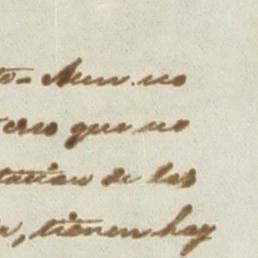 to- Aun no
terso que no
tacion de las
n, tienen hay